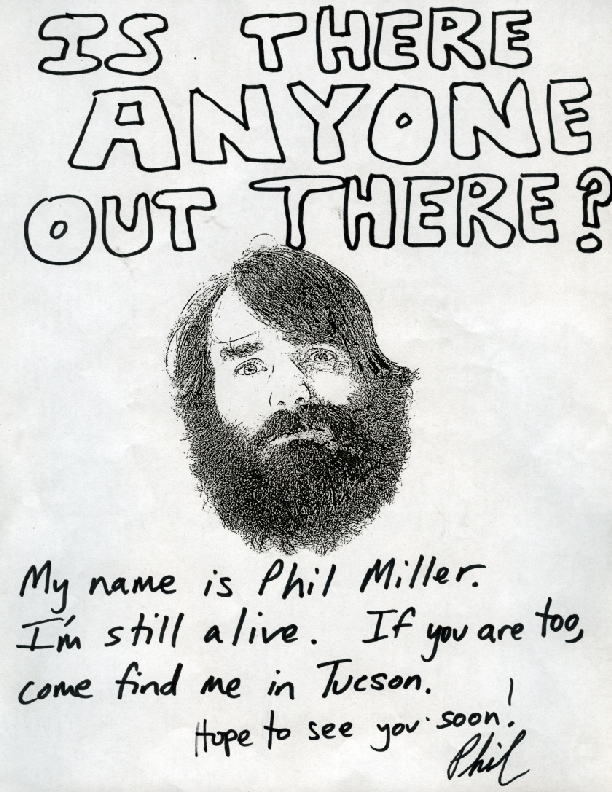 IS THERE
ANYONE
OUT THERE?
My name is Phil Miller.
I'm still alive. If you are too,
come find me in Tucson.
Hope to see you soon!
Phil